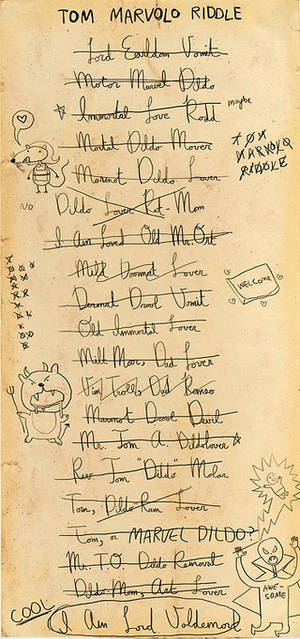 TOM MARVOLO RIDDLE
Lord Earldom Vomit
Motor Marvel Dildo
Immortal Love Rodd
maybe
Mortal Dildo Mover
TOM
MARVOLO
RIDDLE
Marmot Dildo Lover
NO
Dildo Lover Rot Mom
I Am Loved Old Mr. Ort
Mild Doormat Lover
WELCOME
Dermal Drool Vomit
Old Immortal Lover
Milt Moor, Dad Lover
Vim Troll, Dad Romeo
Marmot Drool Devil
Mr. Tom A. Dildolover
Rev. Tom "Dildo" Molar
Tom, Dildo Ram Lover
Tom, or MARVEL DILDO?
Mr. T.O. Dildo Removal
Dildo Mom, Art Lover
AWE-
SOME
COOL
I Am Lord Voldemort